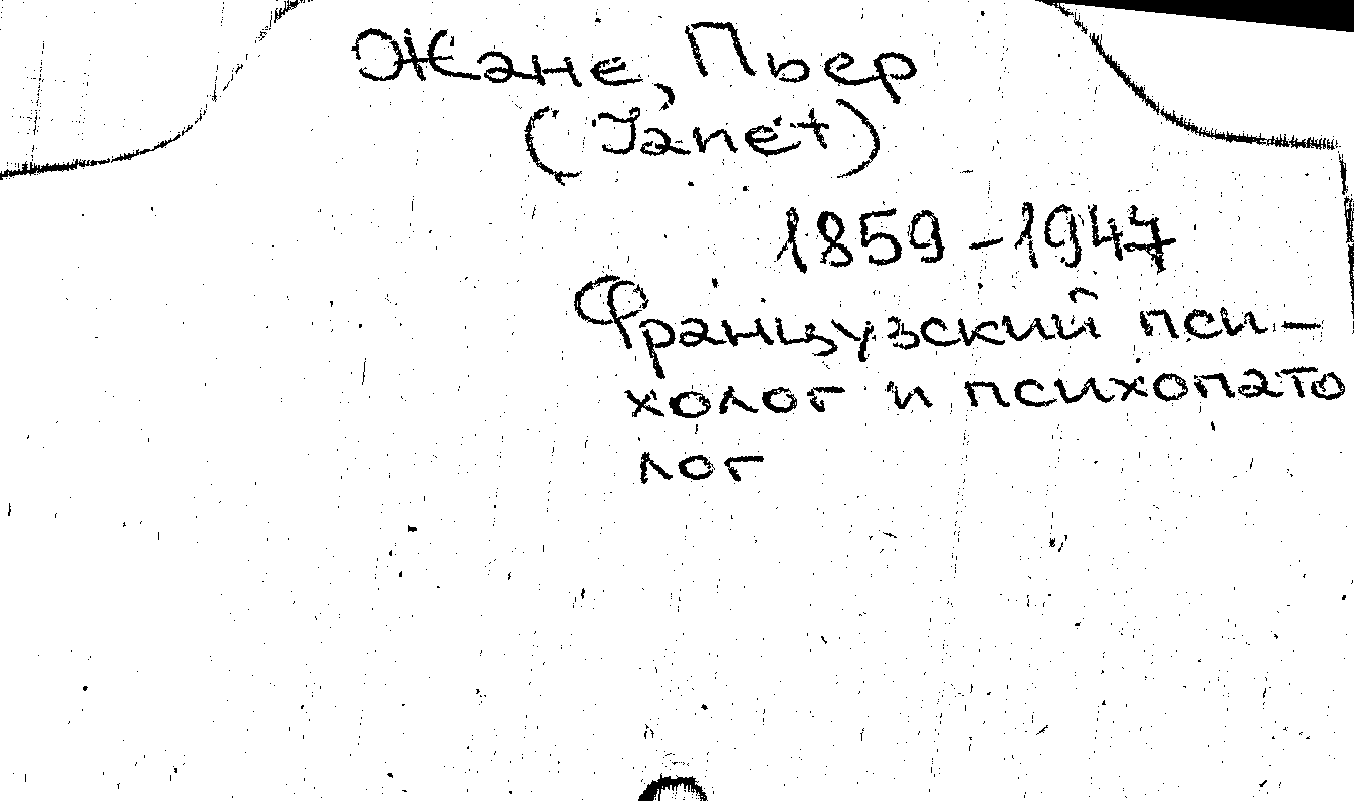 Жане, Пьер
(Janet)
1859-1947
Французский пси-
холог и психопато
лог